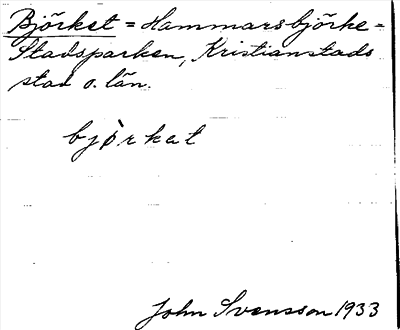 Björket = Hammarsbjörke =
Stadsparken, Kristianstads
stad o. län.
bjòrkat
John Svensson 1933